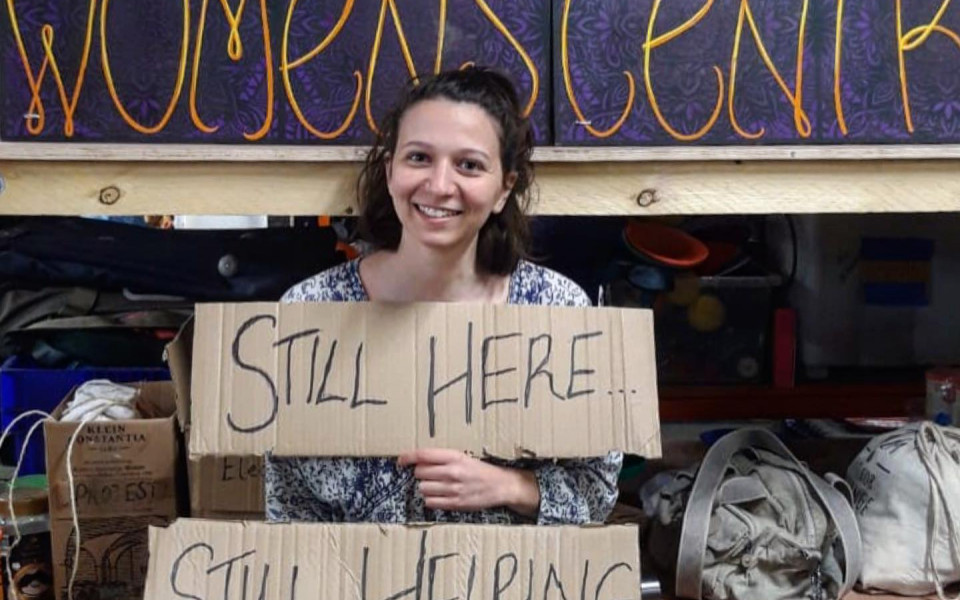 WOMENS CENTR
STILL HERE...
KLEIN
CONSTANTIA
PROTEST
Ele
STILL HELPING